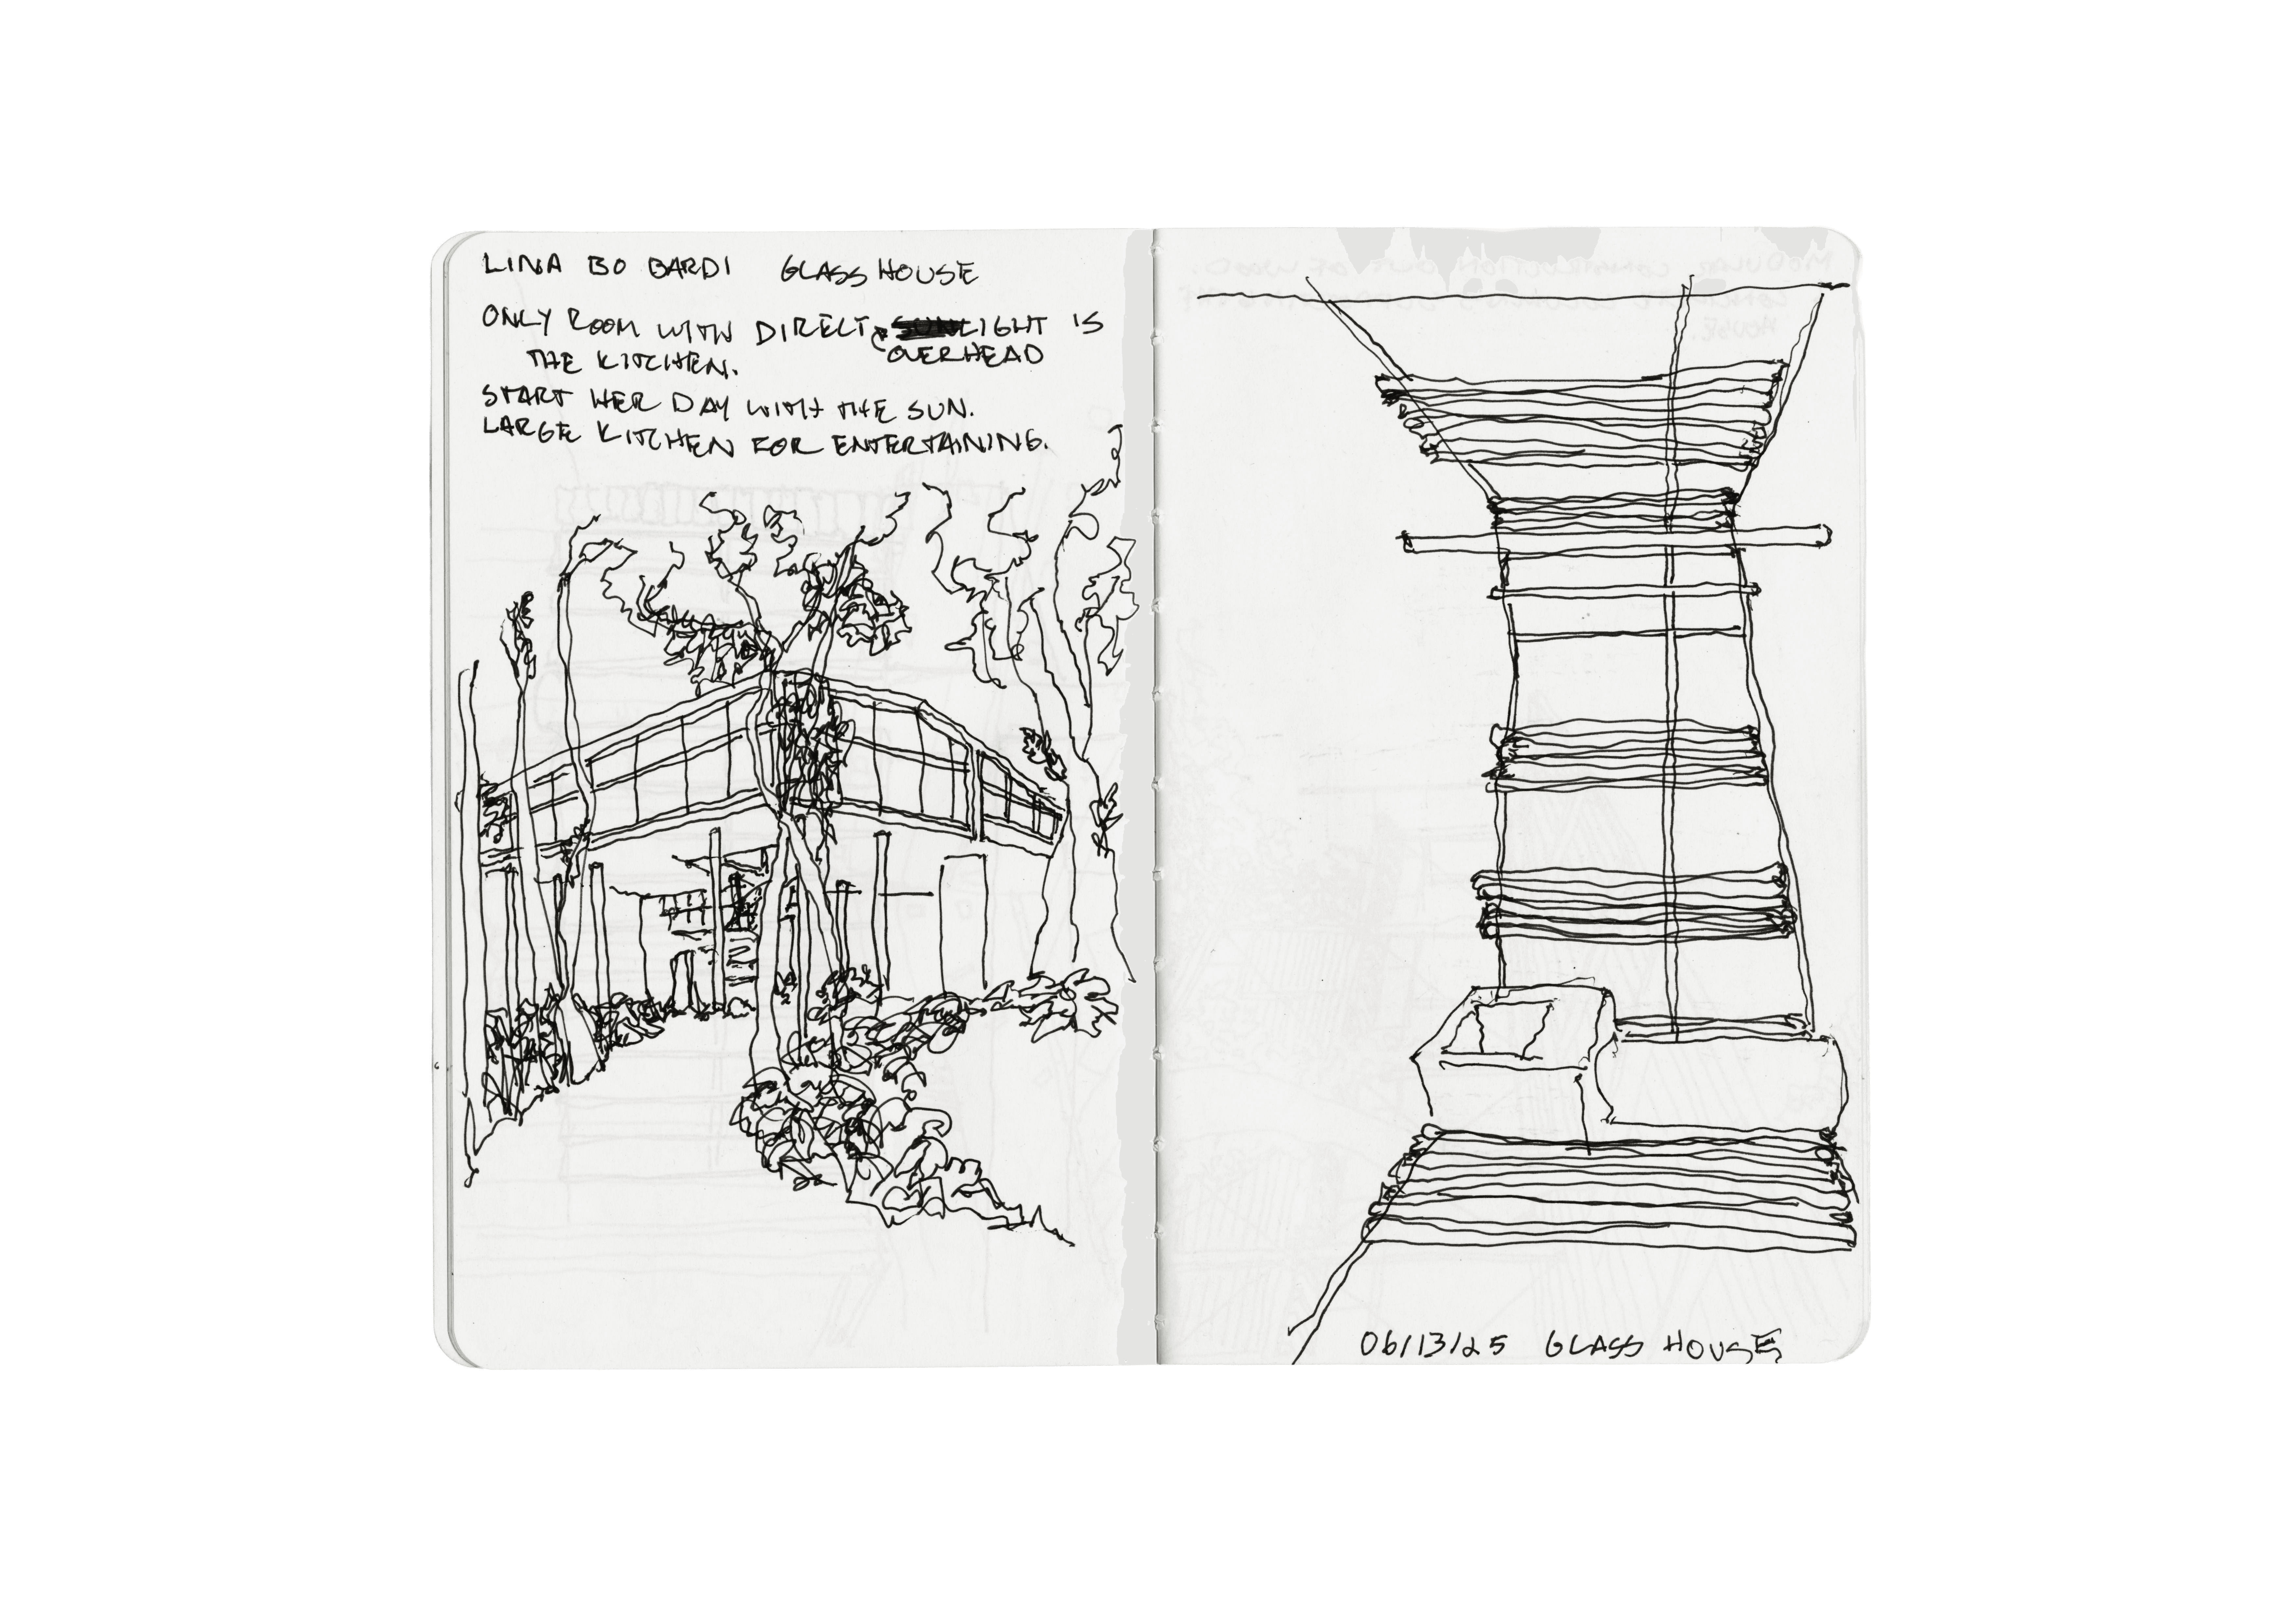 LINA BO BARDI GLASS HOUSE
ONLY ROOM WITH DIRECT LIGHT IS
OVERHEAD
THE KITCHEN.
START HER DAY WITH THE SUN.
LARGE KITCHEN FOR ENTERTAINING.
06/13/25 GLASS HOUSE